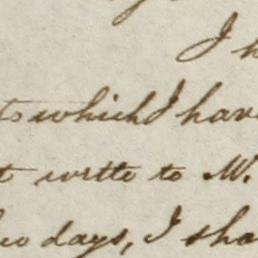 I h
ts which I have
t write to W.
days, I sha